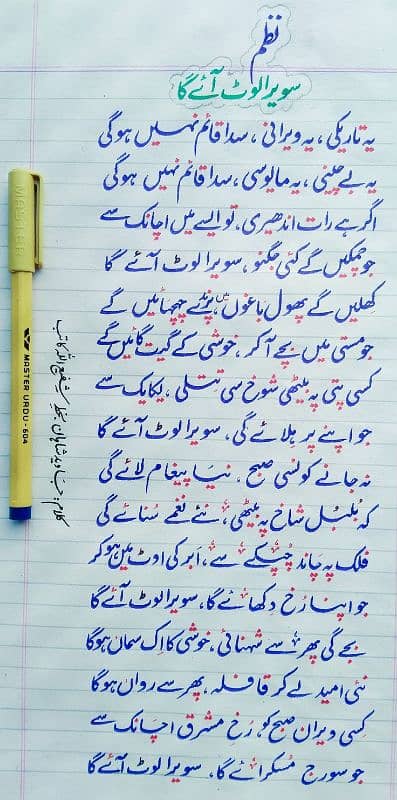 نظم
سویرا لوٹ آئے گا
یہ تاریکی، یہ ویرانی، سدا قائم نہیں ہوگی
یہ بے چینی، یہ مایوسی، سدا قائم نہیں ہوگی
اگر ہے رات اندھیری، تو ایسے میں اچانک سے
جو چمکیں گے کئی جگنو، سویرا لوٹ آئے گا
کھلیں گے پھول باغوں میں، پرندے چہچہائیں گے
جو مستی میں بچے آکر، خوشی کے گیت گائیں گے
کسی پتی پہ بیٹھی شوخ سی تتلی، یکایک سے
جو اپنے پر ہلائے گی، سویرا لوٹ آئے گا
نہ جانے کونسی صبح، نیا پیغام لائے گی
کہ بُلبُل شاخ پہ بیٹھی، نئے نغمے سُنائے گی
فلک پہ چاند چُپکے سے، اَبر کی اوٹ میں ہو کر
جو اپنا رُخ دکھائے گا، سویرا لوٹ آئے گا
بجے گی پھر سے شہنائی، خوشی کا اِک سماں ہوگا
نئی امید لے کر قافلہ، پھر سے رواں ہوگا
کِسی ویران صبح کو، رُخِ مشرق اچانک سے
جو سورج مُسکرائے گا، سویرا لوٹ آئے گا
MASTER
MASTER URDU-604